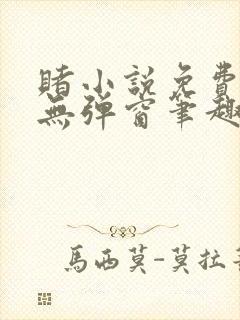 賭小說免費
無彈窗筆趣
馬西莫-莫拉